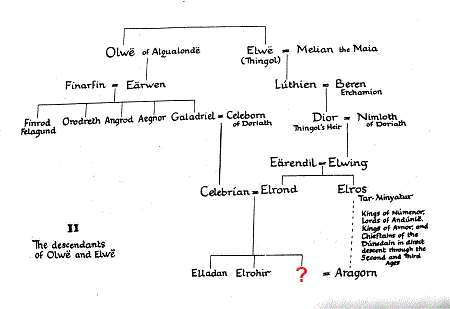 Olwë of Alqualondë
Elwë = Melian the Maia
(Thingol)
Finarfin = Eärwen
Lúthien = Beren
Erchamion
Finrod
Felagund
Orodreth Angrod Aegnor Galadriel = Celeborn
of Doriath
Dior = Nimloth
Thingol's Heir
of Doriath
Eärendil = Elwing
Celebrían = Elrond
Elros
Tar-Minyatur
Kings of Númenor,
Lords of Andúnië,
Kings of Arnor, and
Chieftains of the
Dúnedain in direct
descent through the
Second and Third
Ages
II
The descendants
of Olwë and Elwë
Elladan Elrohir ? = Aragorn